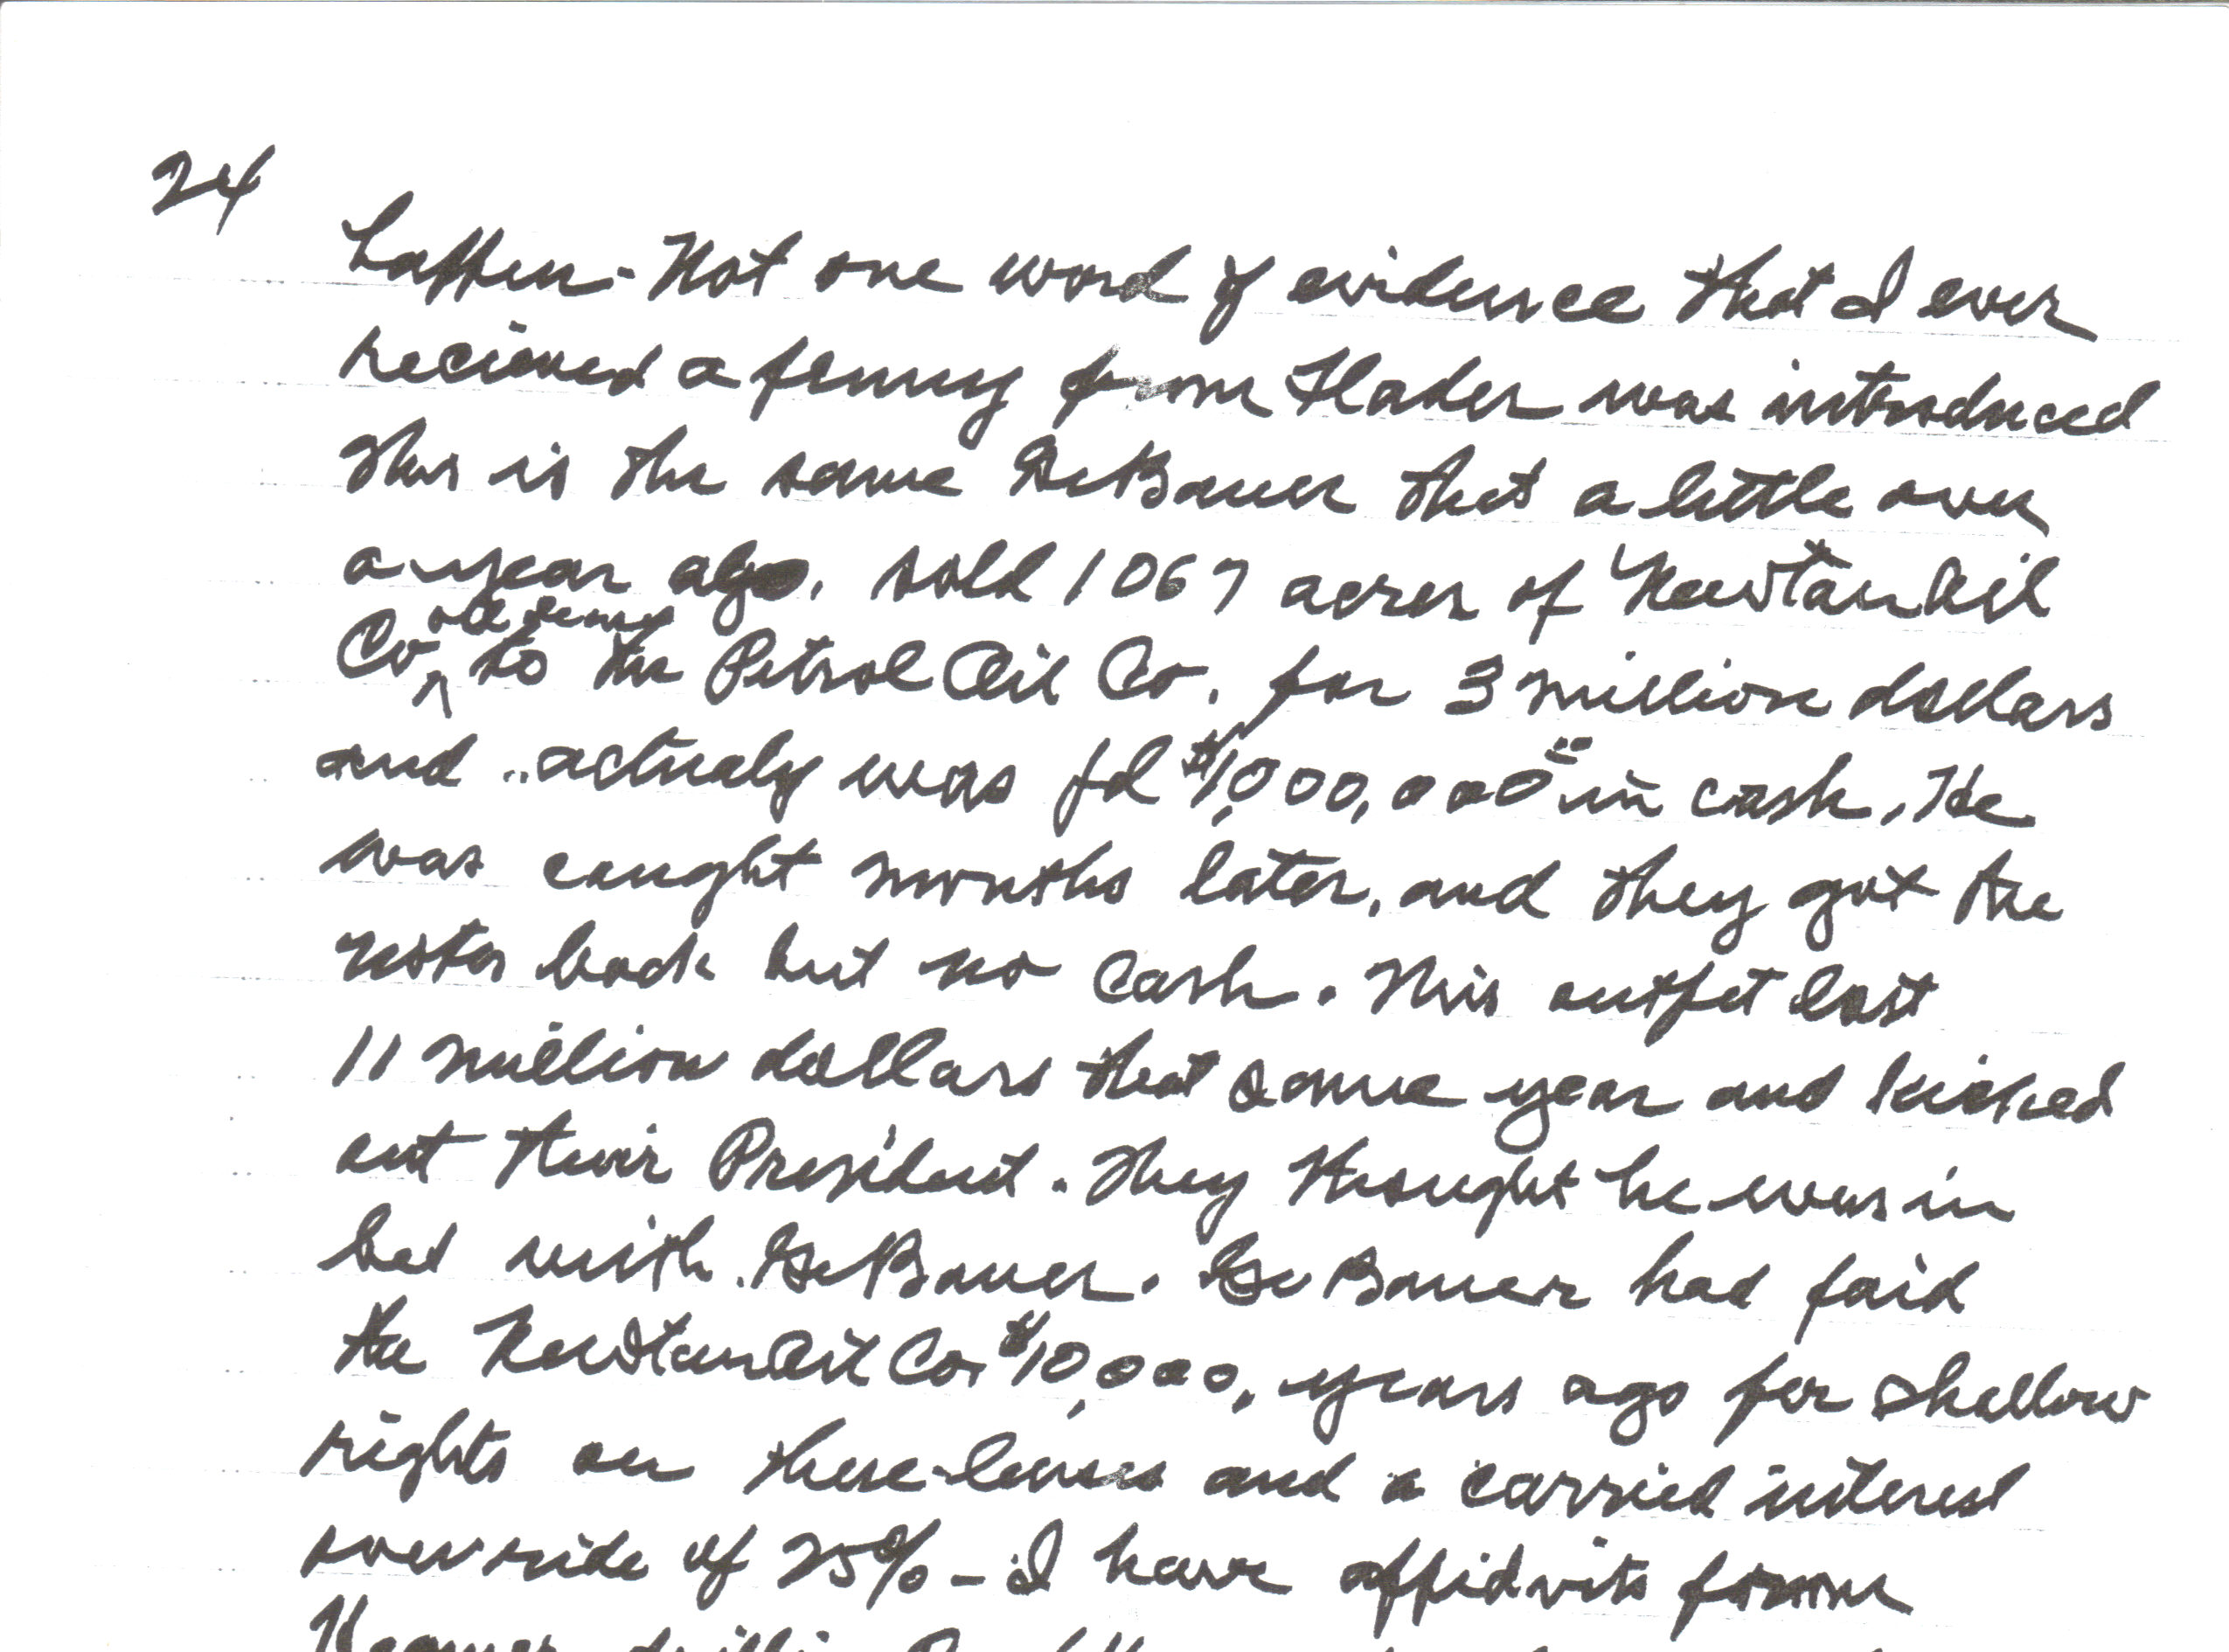 24
happen - Not one word of evidence that I ever
recieved a penny from Hader was introduced
This is the same DeBauer that a little over
a year ago, sold 1067 acres of Newtan Oil
Co. to the Petrol Oil Co. for 3 million dollars
and actualy was pd $1,000,000.00 in cash. He
was caught months later, and they got the
notes back but no cash. This outfit lost
11 million dollars that same year and kicked
out their President. They thought he was in
bed with DeBauer. DeBauer had paid
the Newtan Oil Co. $10,000, years ago for shallow
rights on these leases and a carried interest
over ride of 25% - I have affidvits from